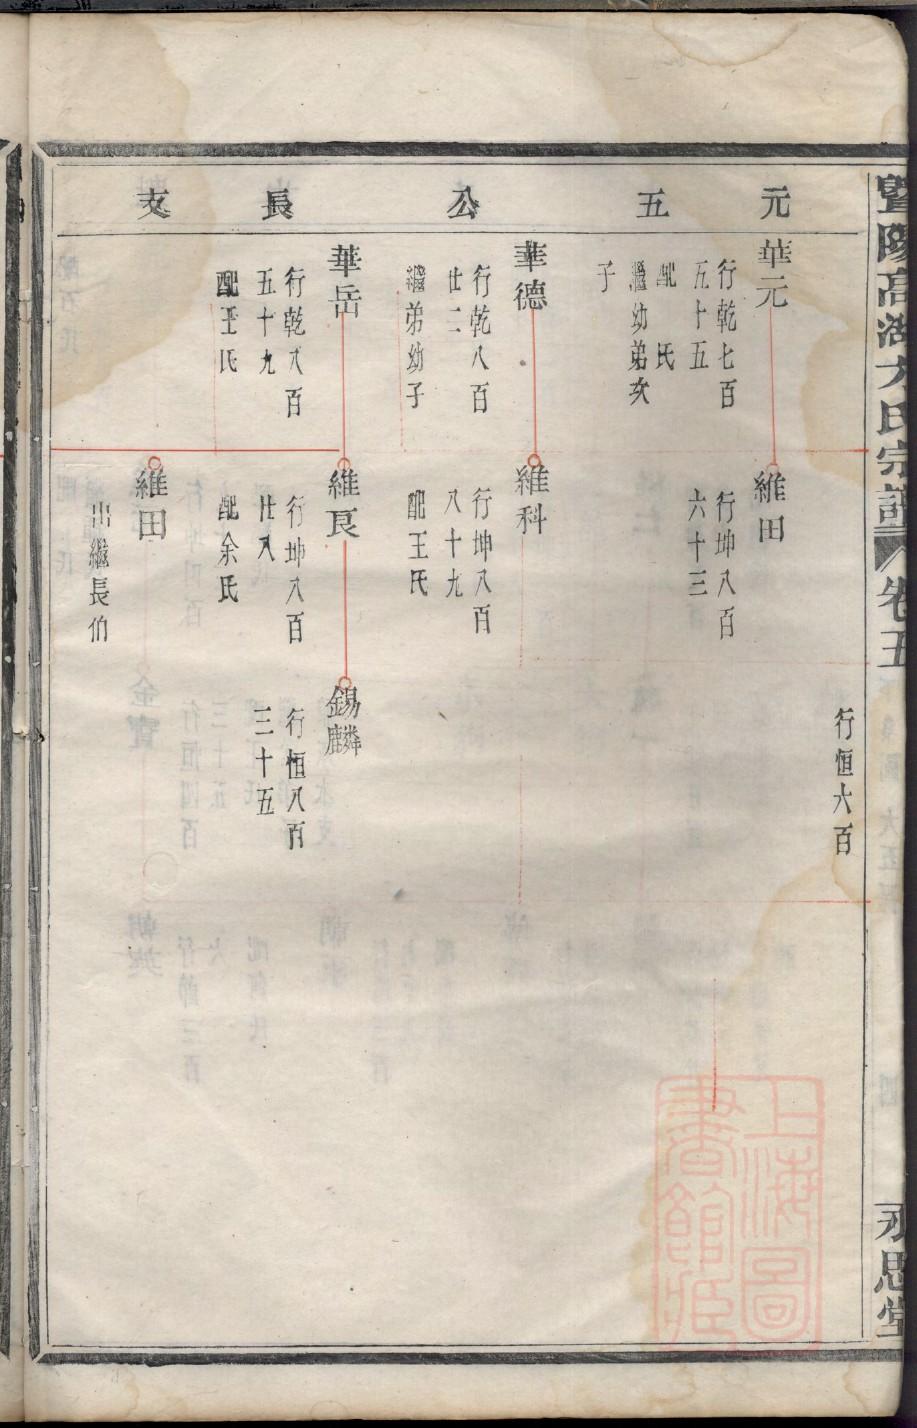 暨陽高湖方氏宗譜 卷五 永思堂
元五公長支
行恒六百
華元
行乾七百
五十五
配 氏
繼幼弟次
子
維田
行坤八百
六十三
華德
行乾八百
廿二
繼弟幼子
維科
行坤八百
八十九
配王氏
華岳
行乾八百
五十九
配王氏
維良
行坤八百
廿八
配余氏
錫麟
行恒八百
三十五
維田
出繼長伯
上海圖書館藏